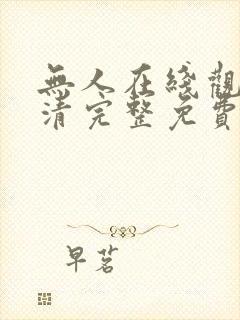 無人在綫觀
清完整免費
早茗